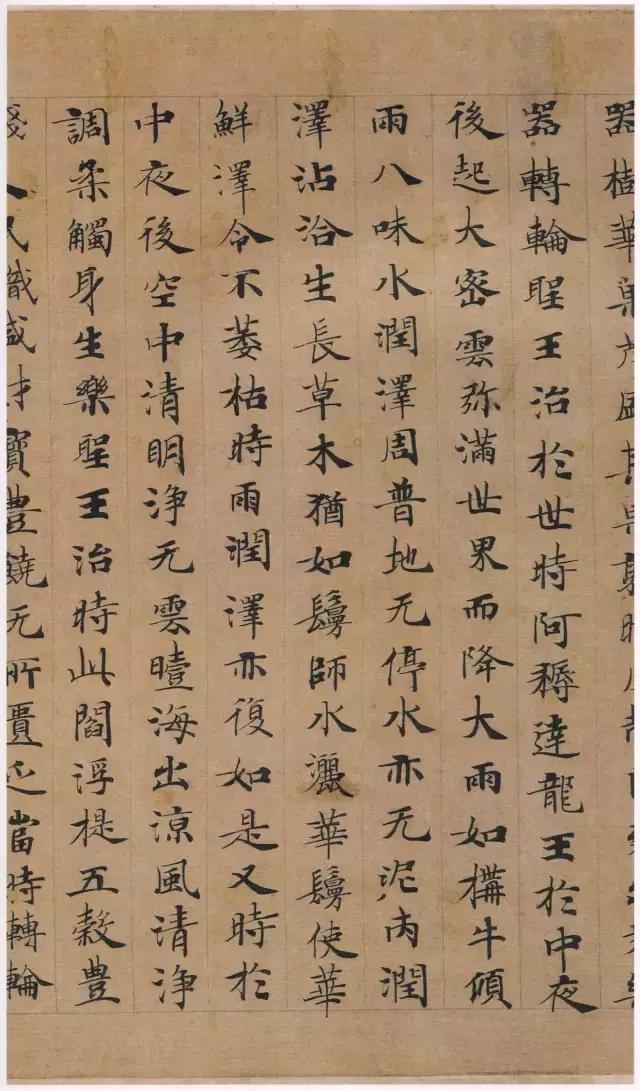 器樹華菓茂盛其果熟時
器轉輪聖王治於世時阿耨達龍王於中夜
後起大密雲弥滿世界而降大雨如搆牛傾
雨八味水潤澤周普地无停水亦无泥内潤
澤沾洽生長草木猶如鬘師水灑華鬘使華
鮮澤令不萎枯時雨潤澤亦復如是又時於
中夜後空中清明淨无雲曀海出涼風清淨
調柔觸身生樂聖王治時此閻浮提五穀豊
賤人民熾盛財寶豊饒无所匱乏當時轉輪